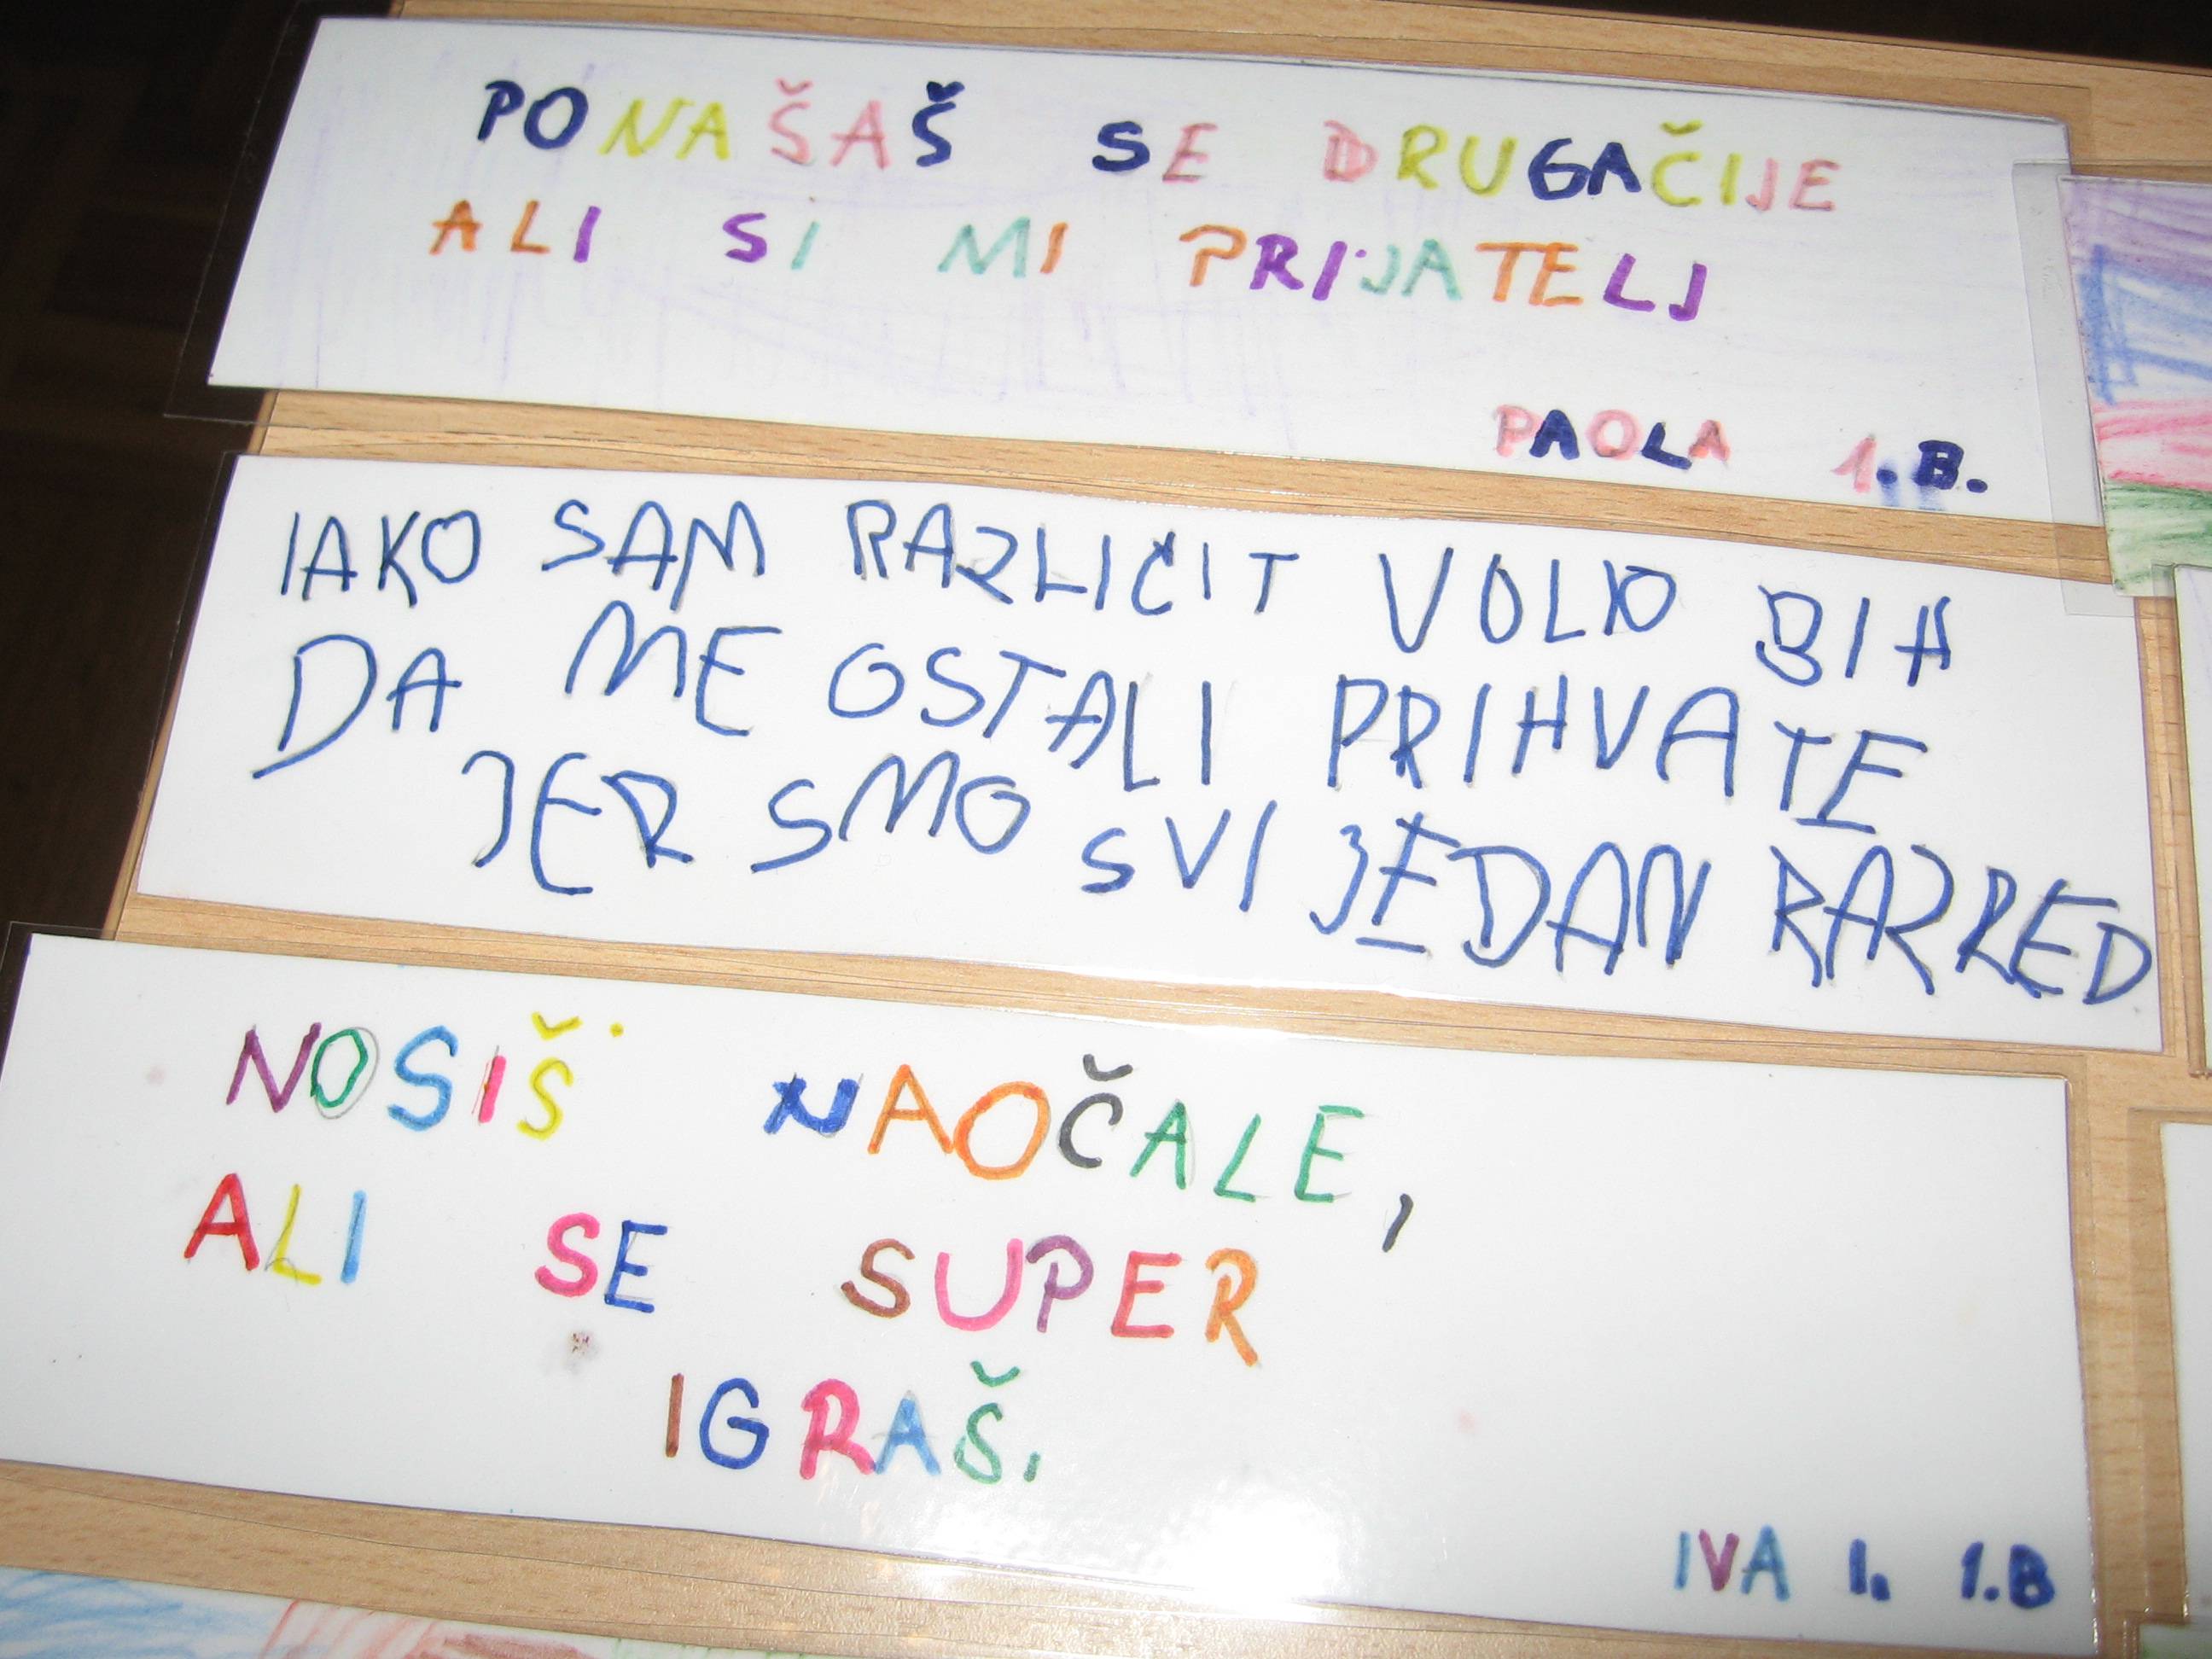 PONAŠAŠ SE DRUGAČIJE
ALI SI MI PRIJATELJ
PAOLA 1.B.
IAKO SAM RAZLIČIT VOLIO BIH
DA ME OSTALI PRIHVATE
JER SMO SVI JEDAN RAZRED
NOSIŠ NAOČALE,
ALI SE SUPER
IGRAŠ.
IVA I. 1.B